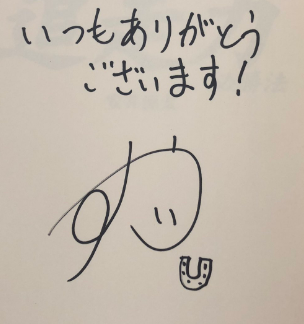 いつもありがとう
ございます!